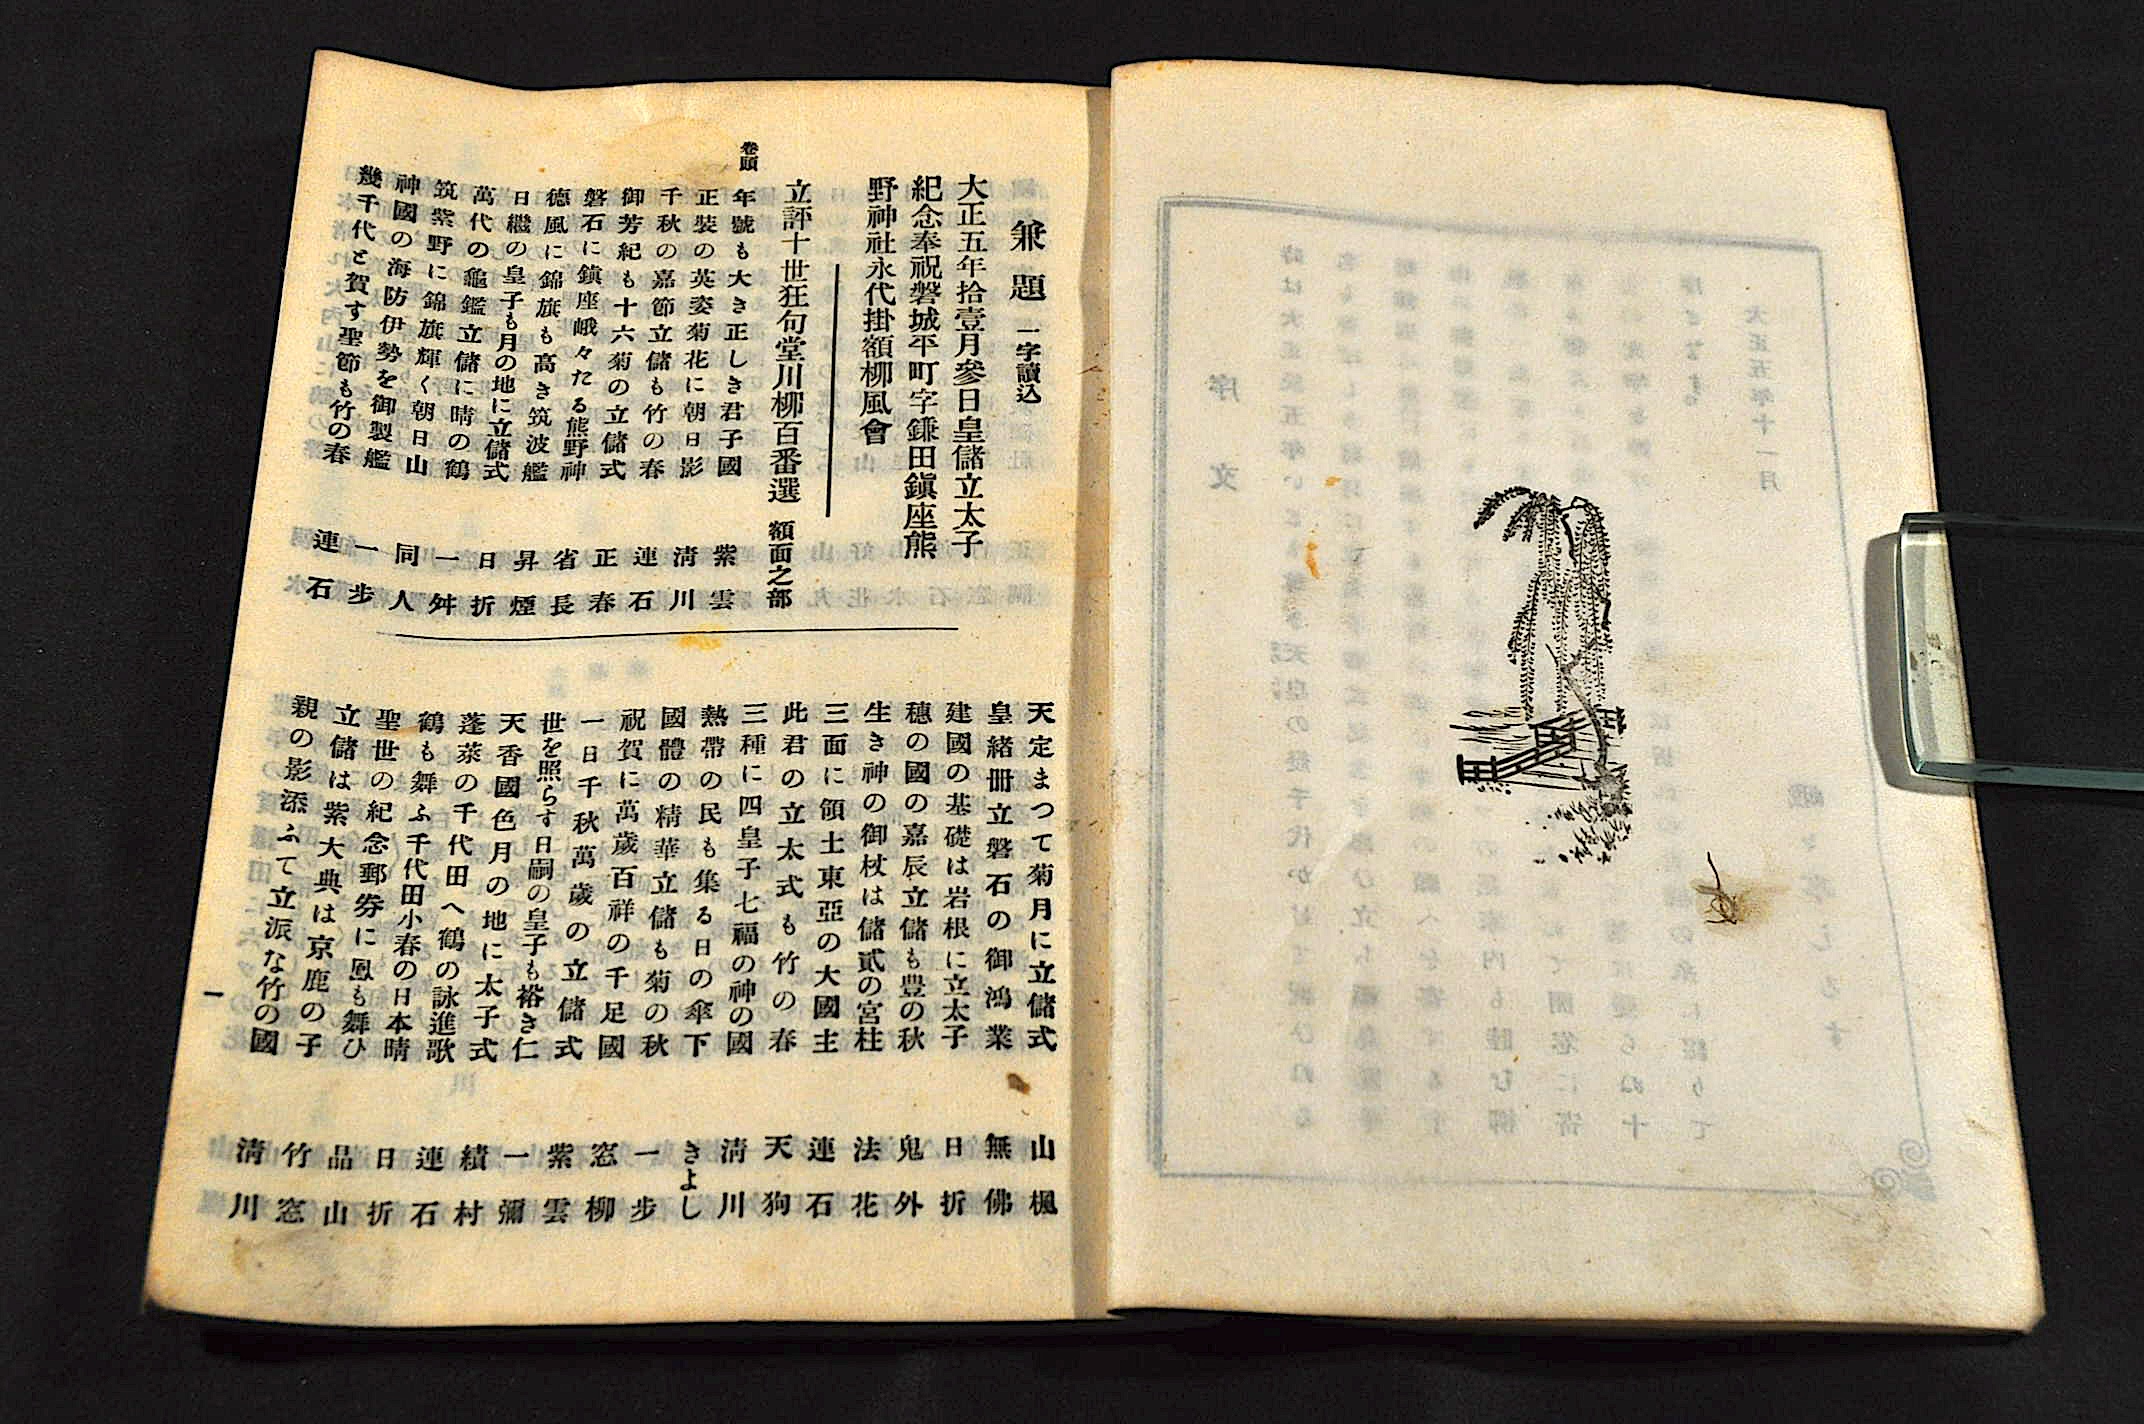 兼題 一字讀込
大正五年拾壹月參日皇儲立太子
紀念奉祝磐城平町字鎌田鎭座熊
野神社永代掛額柳風會
立評十世狂句堂川柳百番選 額面之部
卷頭 年號も大き正しき君子國 紫雲
正裝の英姿菊花に朝日影 淸川
千秋の嘉節立儲も竹の春 連石
御芳紀も十六菊の立儲式 正春
磐石に鎭座峨々たる熊野神 省長
德風に錦旗も高き筑波艦 昇煙
日繼の皇子も月の地に立儲式 日折
萬代の龜鑑立儲に晴の鶴 一舛
筑紫野に錦旗輝く朝日山 同人
神國の海防伊勢を御製艦 一步
幾千代と賀す聖節も竹の春 連石
天定まつて菊月に立儲式 山楓
皇緒冊立磐石の御鴻業 無佛
建國の基礎は岩根に立太子 日折
穗の國の嘉辰立儲も豊の秋 鬼外
生き神の御杖は儲貳の宮柱 法花
三面に領土東亞の大國主 連石
此君の立太式も竹の春 天狗
三種に四皇子七福の神の國 淸川
熱帶の民も集る日の傘下 きよし
國體の精華立儲も菊の秋 一步
祝賀に萬歲百祥の千足國 窓柳
一日千秋萬歲の立儲式 紫雲
世を照らす日嗣の皇子も裕き仁 一彌
天香國色月の地に太子式 績村
蓬萊の千代田へ鶴の詠進歌 連石
鶴も舞ふ千代田小春の日本晴 日折
聖世の紀念郵券に鳳も舞ひ 品山
立儲は紫大典は京鹿の子 竹窓
親の影添ふて立派な竹の國 淸川
一